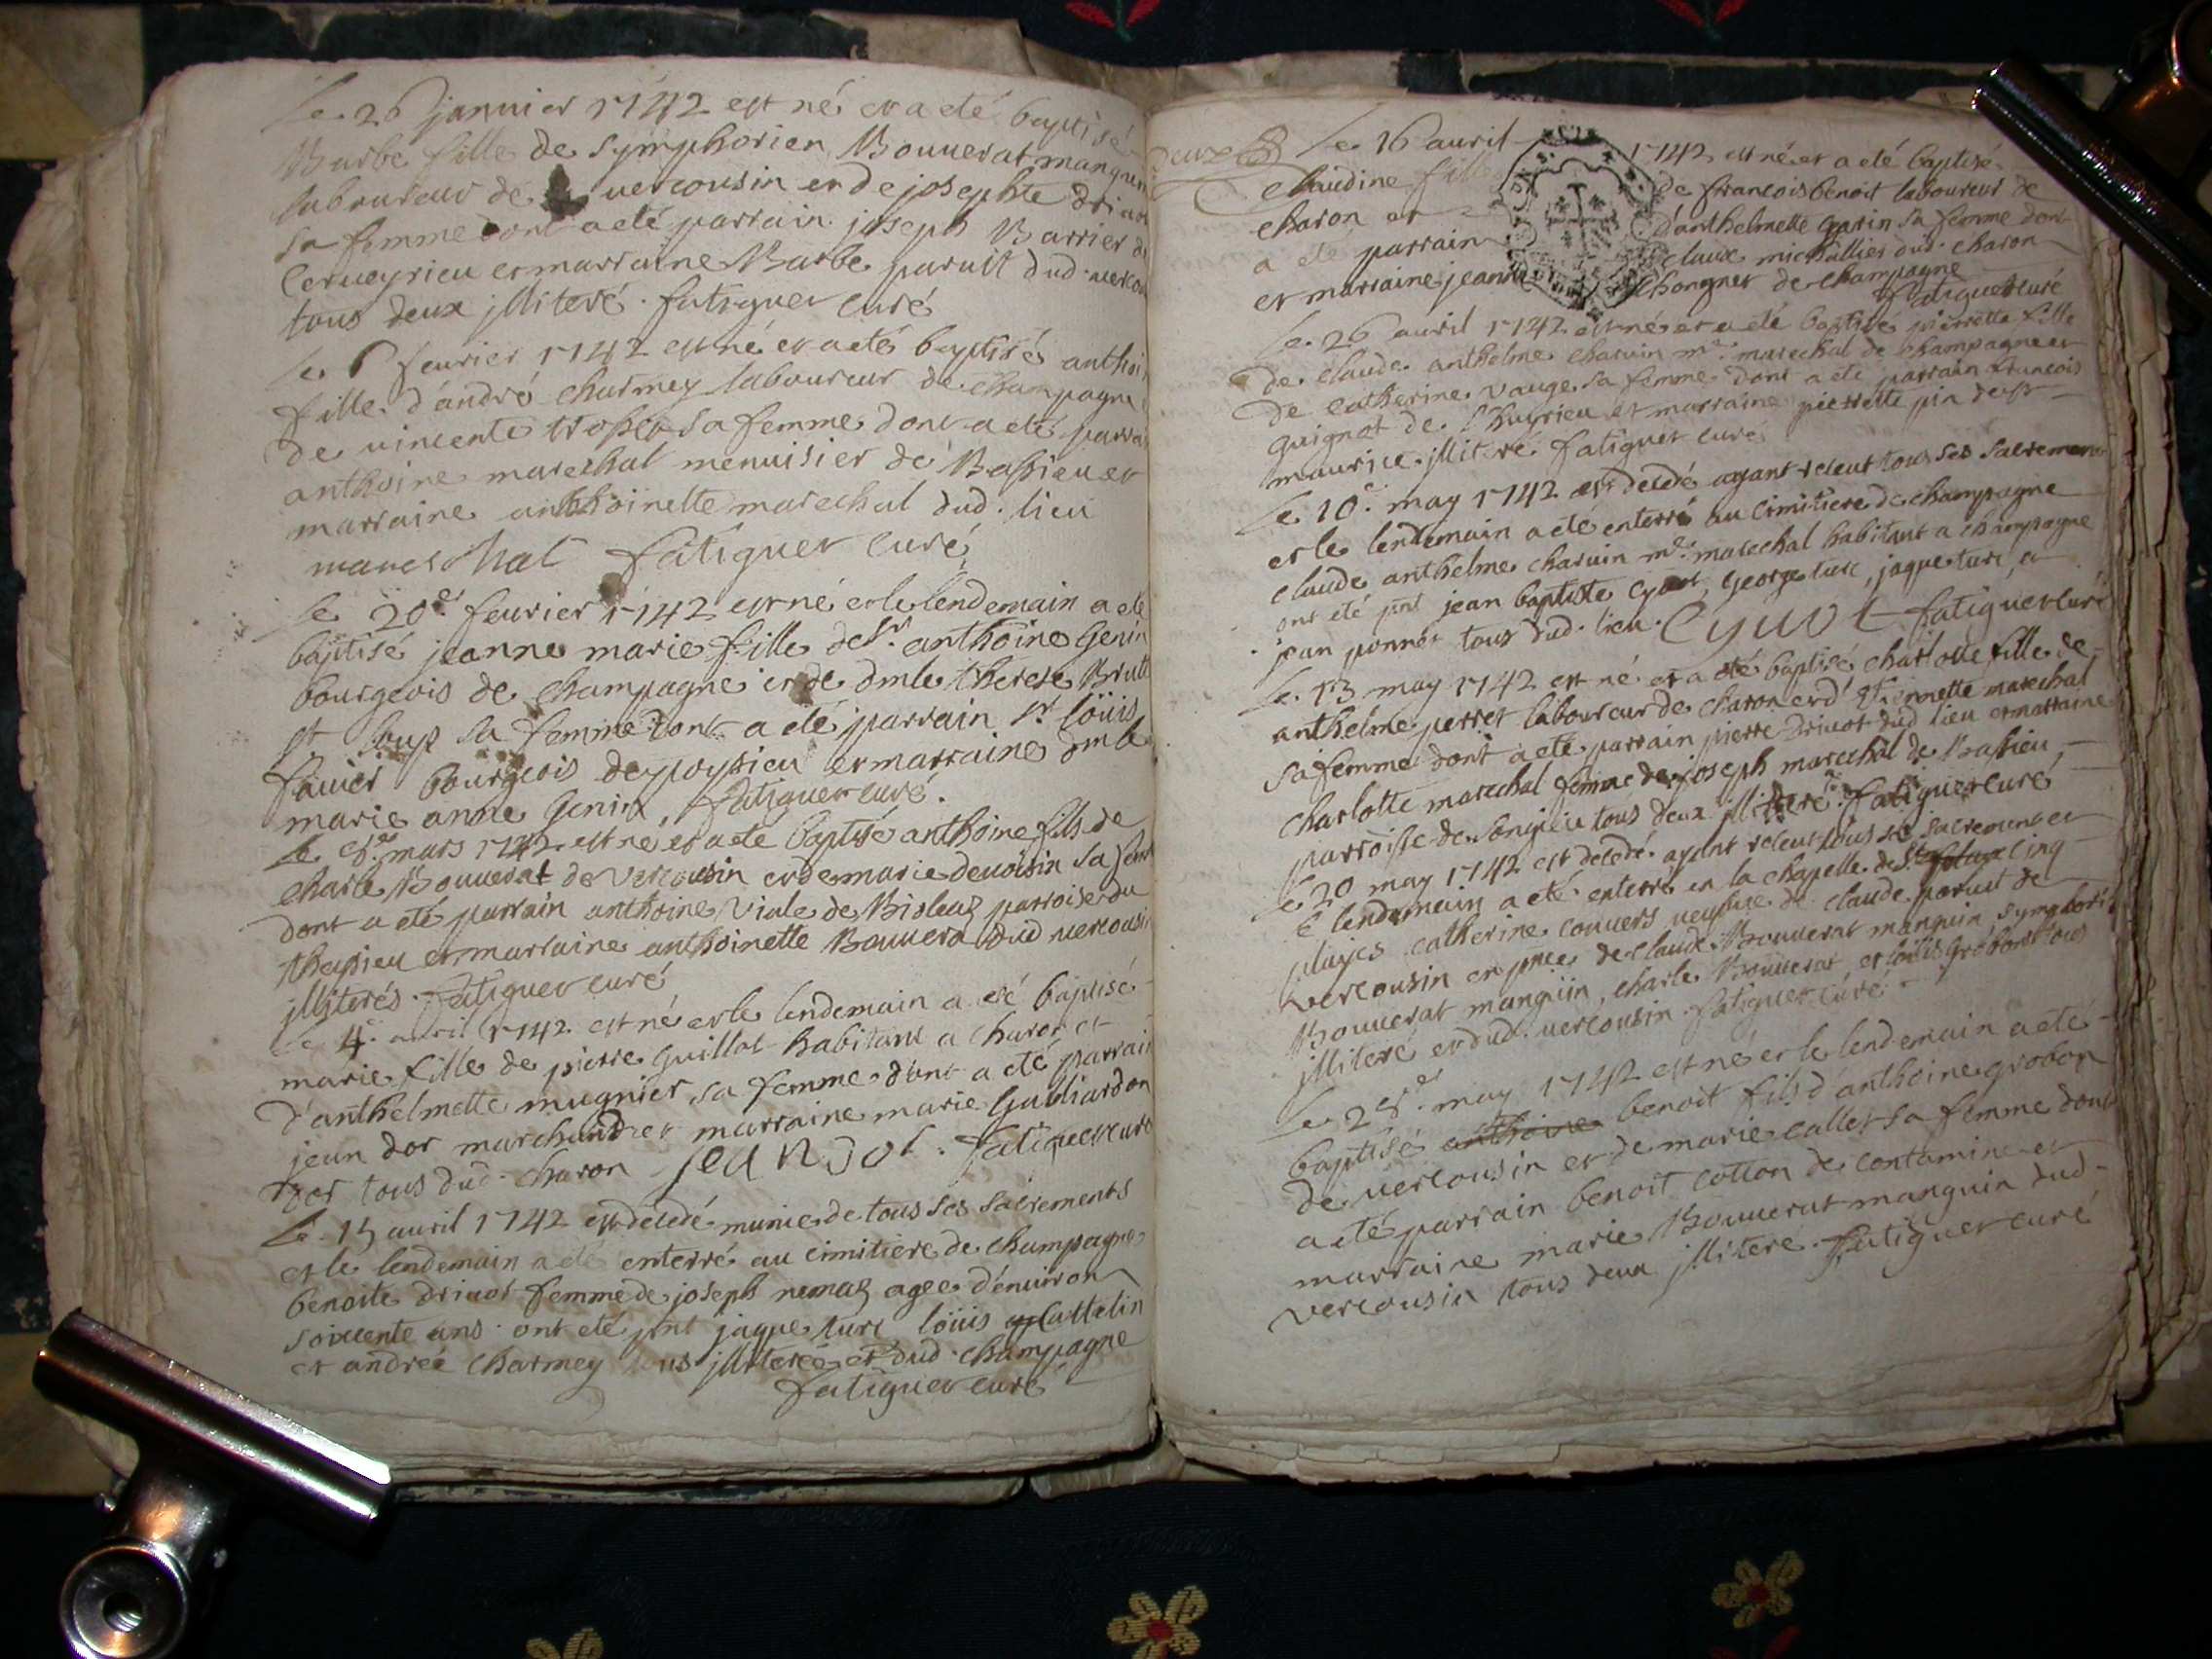 Le 26 januier 1742 est né et a eté baptisé
Barbe fille de symphorien Bouuerat manguin
laboureur de uercousin et de josephte driuot
sa femme dont a eté parrain joseph Barrier de
Cerueyrieu et marraine Barbe paruit dud. uercou
tous deux jlliteré. fatiguet curé
le 6 feurier 1742 est né et a eté baptisé anthoi
fille d'andré charmey laboureur de champagne
de uincente sa femme dont a eté parrai
anthoine marechal menuisier de Bassieu et
marraine anthoinette marechal dud. lieu
mareschal fatiguet curé
le 20e feurier 1742 est né et le lendemain a eté
baptisé jeanne marie fille de sr anthoine Genin
bourgeois de champagne et de dmle therese Brutt
st loup sa femme dont a eté parrain sr loüis
fauier bourgeois de poysieu et marraine dmle
marie anne Genin, fatiguet curé.
le mars 1742 est né et a eté baptisé anthoine fils de
charle Bouuerat de vercousin et de marie deuoisin sa fem
dont a eté parrain anthoine Viale de Bioleaz parroise du
thesieu et marraine anthoinette Bouuera dud uercousin
jlliterés. fatiguet curé
le 4e auril 1742 est né et le lendemain a eté baptisé
marie fille de pierre Guillot habitant a charon et
d'anthelmette mugnier sa femme dont a eté parrain
jean dor marchand et marraine marie Gulliardon
tous dud. charon jean dor. fatiguet curé
le 15 auril 1742 est decedé munie de tous ses sacrements
et le lendemain a eté enterré au cimitiere de champagne
benoite driuot femme de joseph nemoz agee d'enuiron
soixente ans. ont eté pnt jaque turc loüis Cattelin
et andreé charmey tous jlliteré et dud. champagne
fatiguet curé
deux s
le 16 auril 1742 est né et a eté baptisé
claudine fille de francois benoit laboureur de
charon et d'anthelmette Garin sa femme dont
a eté parrain claude michallier dud. charon
et marraine jeanne chongnet de champagne
fatiguet curé
le 26 auril 1742 est né et a eté baptisé pierrette fille
de claude anthelme charuin me. marechal de champagne et
de catherine Vauge sa femme dont a eté parrain francois
guignot de Chuyrieu et marraine pierrette pin de st
maurice jlliteré fatiguet curé
le 10e. may 1742 est decedé ayant receut tous ses sacremens
et le lendemain a eté enterré au cimitiere de champagne
claude anthelme charuin me. marechal habitant a champagne
ont eté pnt jean baptiste Cyuot, George turc, jaque turc, et
jean ponnet tous dud. lieu. Cyuot fatiguet curé
le 13 may 1742 est né et a eté baptisé charlotte fille de
anthelme perret laboureur de charon et d'etiennette marechal
sa femme dont a eté parrain pierre Driuot dud lieu et marraine
charlotte marechal femme de joseph marechal de Bassieu
parroisse de songieu tous deux jlliteré. fatiguet curé
le 20 may 1742 est decedé ayant receut tous ses sacremens et
le lendemain a eté enterré en la chapelle des cinq
playes catherine conuers ueufue de claude paruit de
vercousin en pnce de claude Bouuerat manguin symphori
Bouuerat manguin, charle Bouuerat, et loüis Grobon tous
jlliteré et dud. uercousin. fatiguet curé
le 28e. may 1742 est né et le lendemain a eté
baptisé anthoine benoit fils d'anthoine grobon
de uercousin et de marie callet sa femme dont
a eté parrain benoit cotton de contamine et
marraine marie Bouuerat manguin dud.
vercousin tous deux jlliteré. fatiguet curé